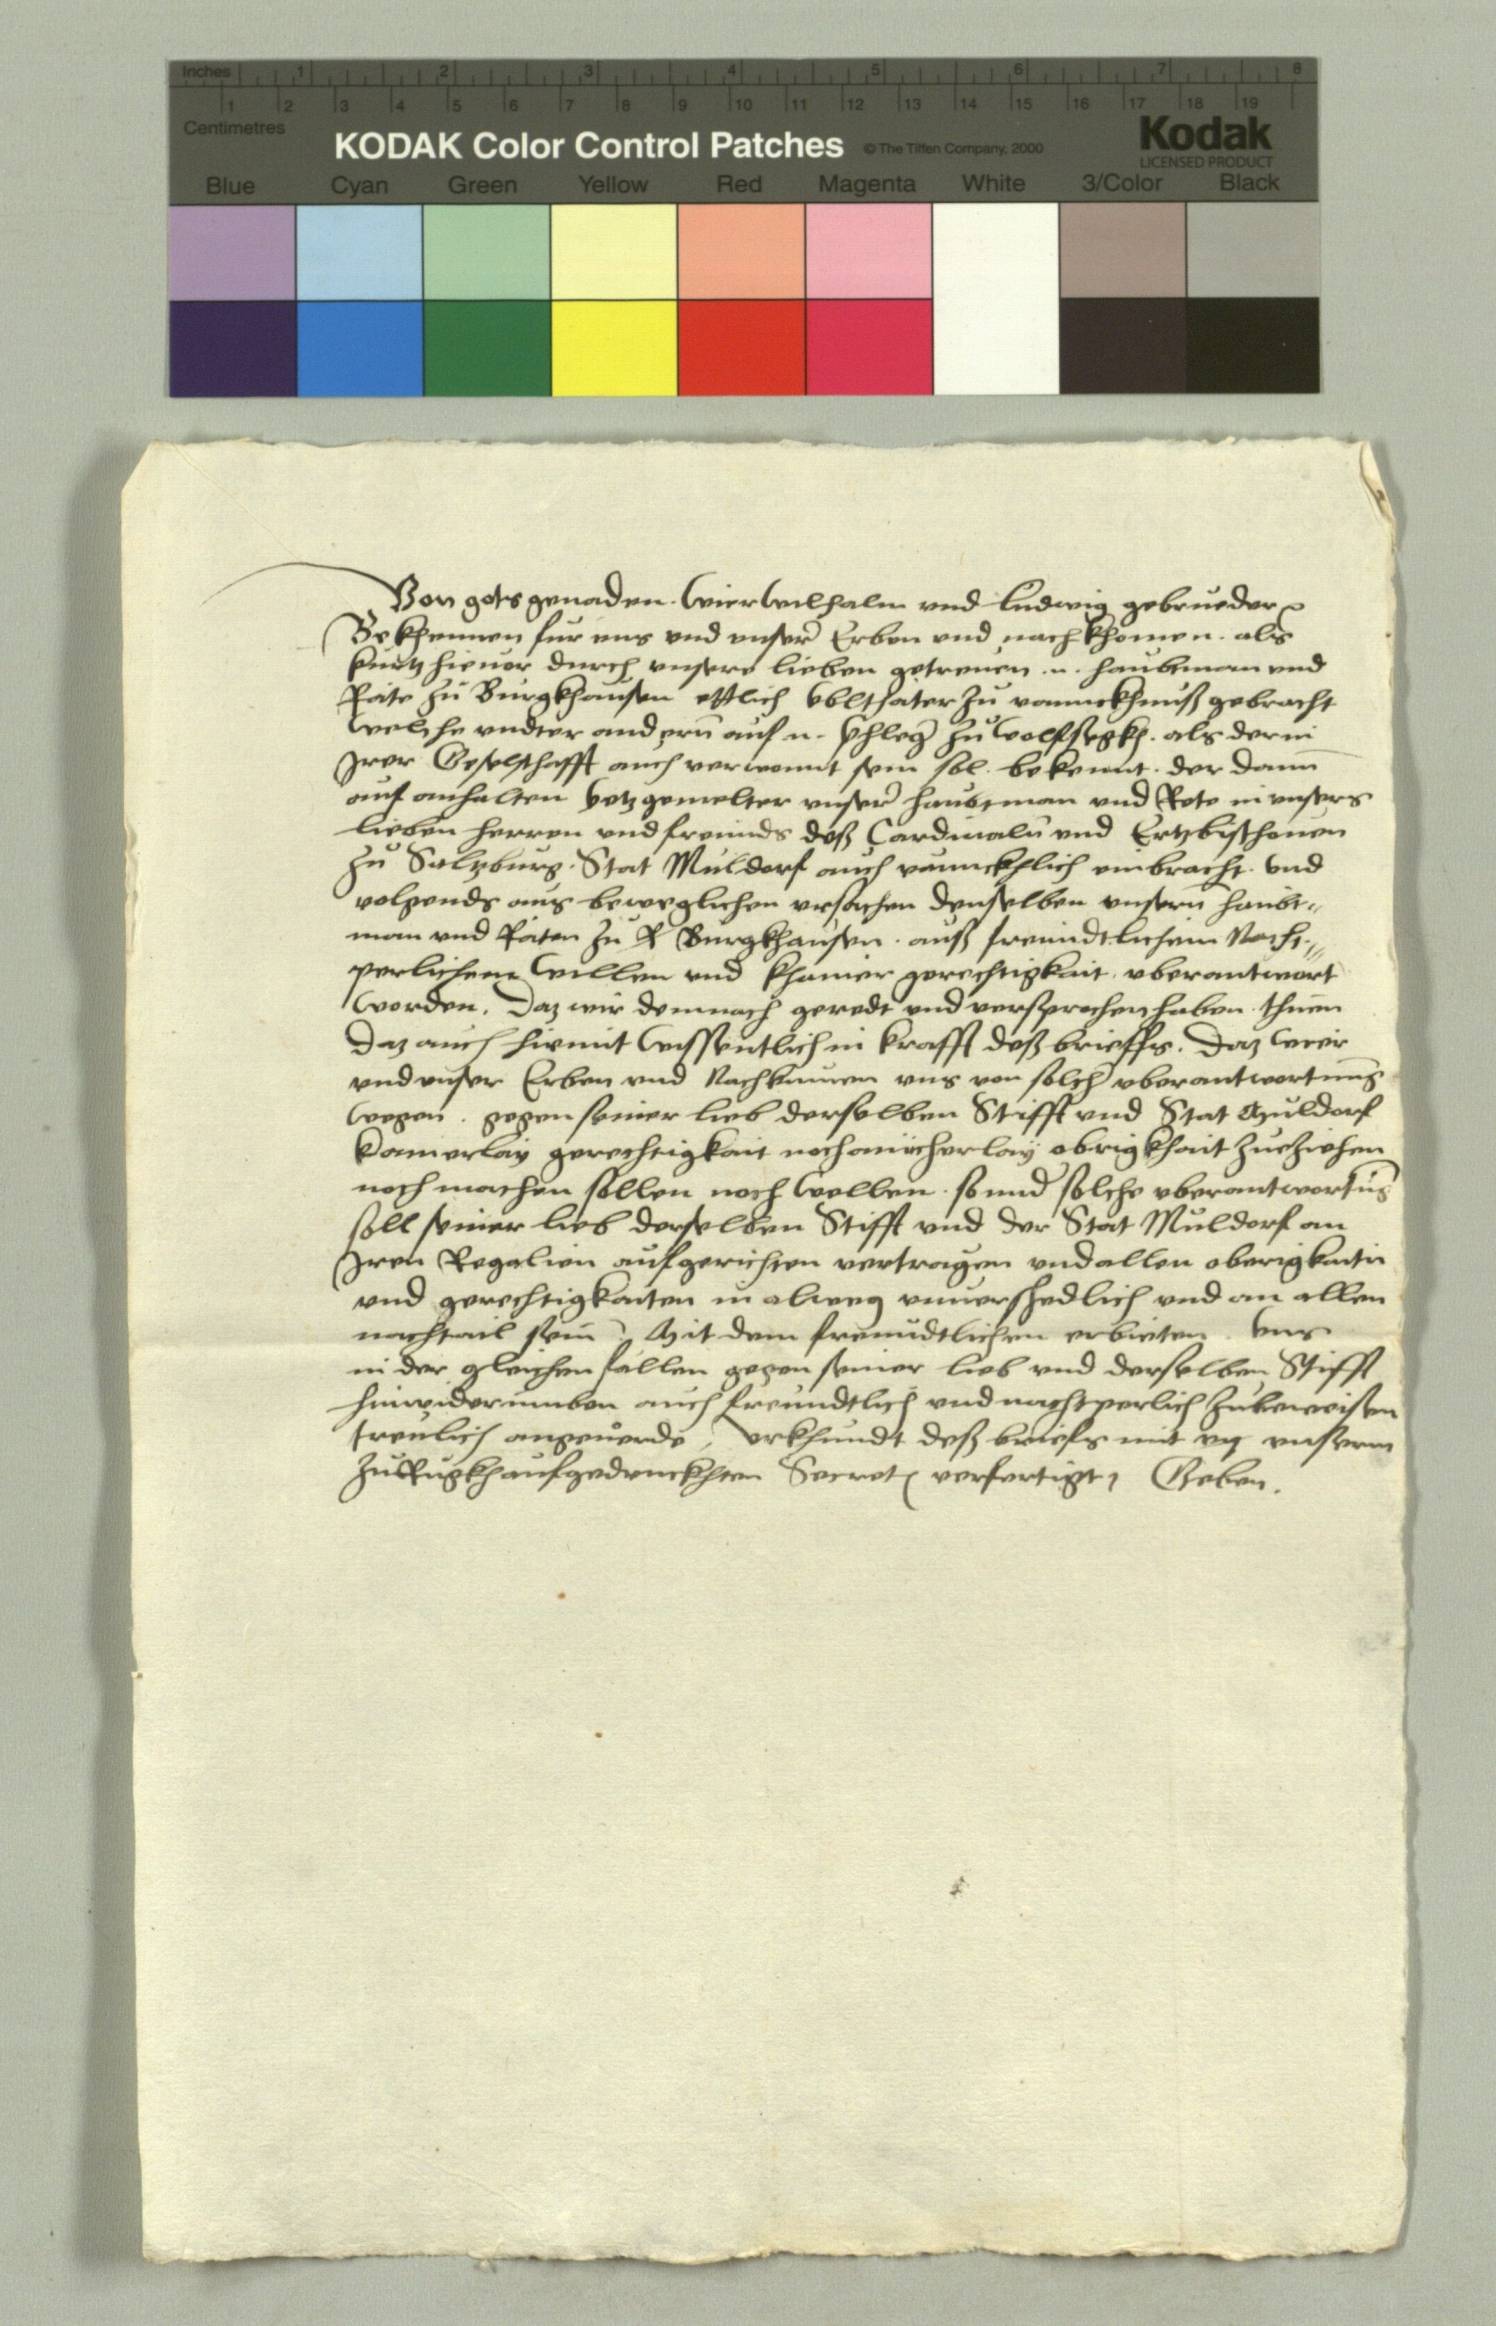 Inches 1 2 3 4 5 6 7 8
1 2 3 4 5 6 7 8 9 10 11 12 13 14 15 16 17 18 19
Centimetres
KODAK Color Control Patches © The Tiffen Company, 2000 Kodak
LICENSED PRODUCT
Blue Cyan Green Yellow Red Magenta White 3/Color Black
Von gots genaden. Wier Wilhalm vnd Ludwig gebrueder
Bekhennen fur vns vnd vnser Erben vnd nachkhomen. als
kurtz hieuor durch vnsere lieben getreuen .n. haubtman vnd
Räte zu Burgkhausen ettlich vbltháter zu vannckhnuß gebracht
welche vndter andern auf n. phleger zu Wolfsegkh. als der in
Irer Geselschafft auch verwonnt sein sol. bekennt. der dann
auf anhalten yetzgemelter vnser haubtman vnd Rete in vnsers
lieben herren vnd freunds deß Cardinaln vnd Ertzbischouen
zu Saltzburg. Stat Muldorf auch vannckhlich einbracht. vnd
volgends aus beweglichen vrsachen denselben vnsern haubt-
man vnd Räten zu Burgkhausen. auß freundtlichem Nacht-
perlichem Willen vnd khainer gerechtigkait vberantwort
worden. Daz wir demnach geredt vnd versprochen haben. thuen
Daz auch hiemit Wissentlich in krafft deß brieffs. Daz wier
vnd vnser Erben vnd Nachkumen vns von solcher vberantwortung
wegen. gegen seiner lieb derselben Stifft vnd Stat Muldorf
kainerlay gerechtigkait noch ainicherlay obrigkhait zueziehen
noch machen sollen noch wellen. sonnder solche vberantwortung
soll seiner lieb derselben Stifft vnd der Stat Muldorf an
Iren Regalien aufgerichten vertragen vnd allen oberigkaiten
vnd gerechtigkaiten in alweg vnuerschedlich vnd an allen
nachtail sein. Mit dem freundtlichen erbieten. vns
in der gleichen fällen gegen seiner lieb vnd derselben Stifft
hinwiderumben auch freundtlich vnd nachtperlich zubeweisen
treulich angeuerde, vrkhundt deß briefs mit vnserm
zu Rugkh aufgedruckhten Secret verfertigt, Geben.